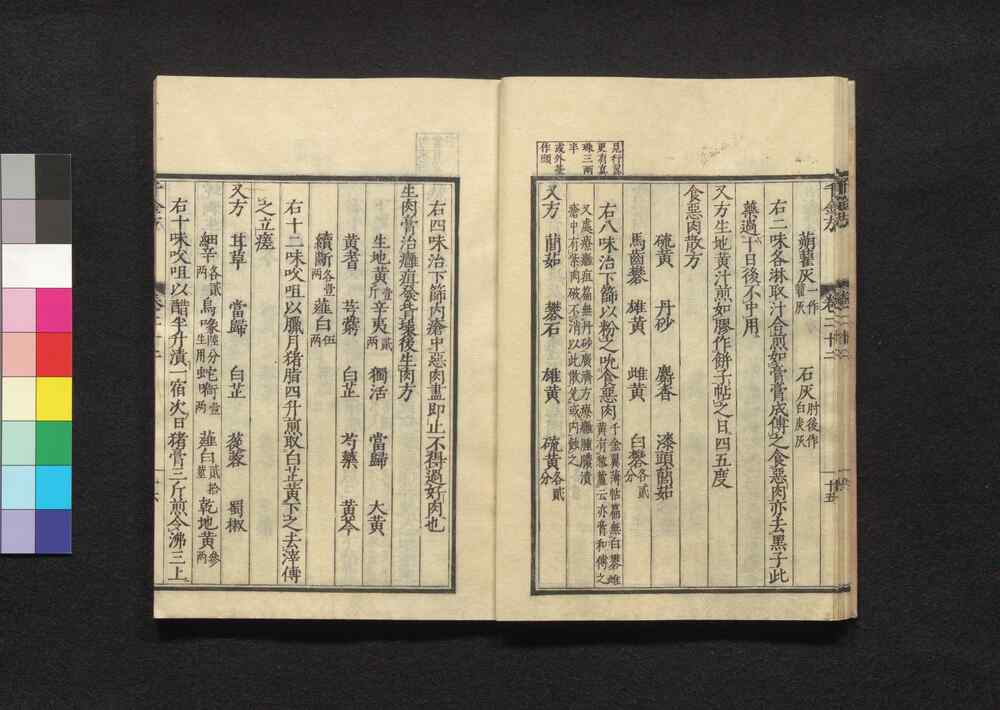 蒴藋灰一作藋灰 石灰肘後作白炭灰
右二味各淋取汁合煎如膏膏成傅之食惡肉亦去黑子此
藥過十日後不中用
又方生地黃汁煎如膠作餅子帖之日四五度
食惡肉散方
硫黃 丹砂 麝香 漆頭䕡茹
馬齒礬 雄黃 雌黃 白礬各貳分
右八味治下篩以粉之吮食惡肉千金翼薄帖篇無白礬雌黃有藜蘆云亦膏和傅之
又處療癰疽篇無丹砂廣濟方療癰腫膿潰
瘡中有紫肉破不消以此散兌或內蝕之
又方 䕡茹 礬石 雄黃 硫黃各貳分
更有真
珠三兩
半
或外臺
作頭
右四味治下篩內瘡中惡肉盡即止不得過好肉也
生肉膏治癰疽發背壞後生肉方
生地黃壹斤 辛夷貳兩 獨活 當歸 大黃
黃耆 芎藭 白芷 芍藥 黃芩
續斷各壹兩 薤白伍兩
右十二味㕮咀以臘月猪脂四升煎取白芷黃下之去滓傅
之立瘥
又方 甘草 當歸 白芷 蓯蓉 蜀椒
細辛各貳兩 烏喙陸分生用 蛇銜壹兩 薤白貳拾莖 乾地黃參兩
右十味㕮咀以醋半升漬一宿次日猪膏二斤煎令沸三上